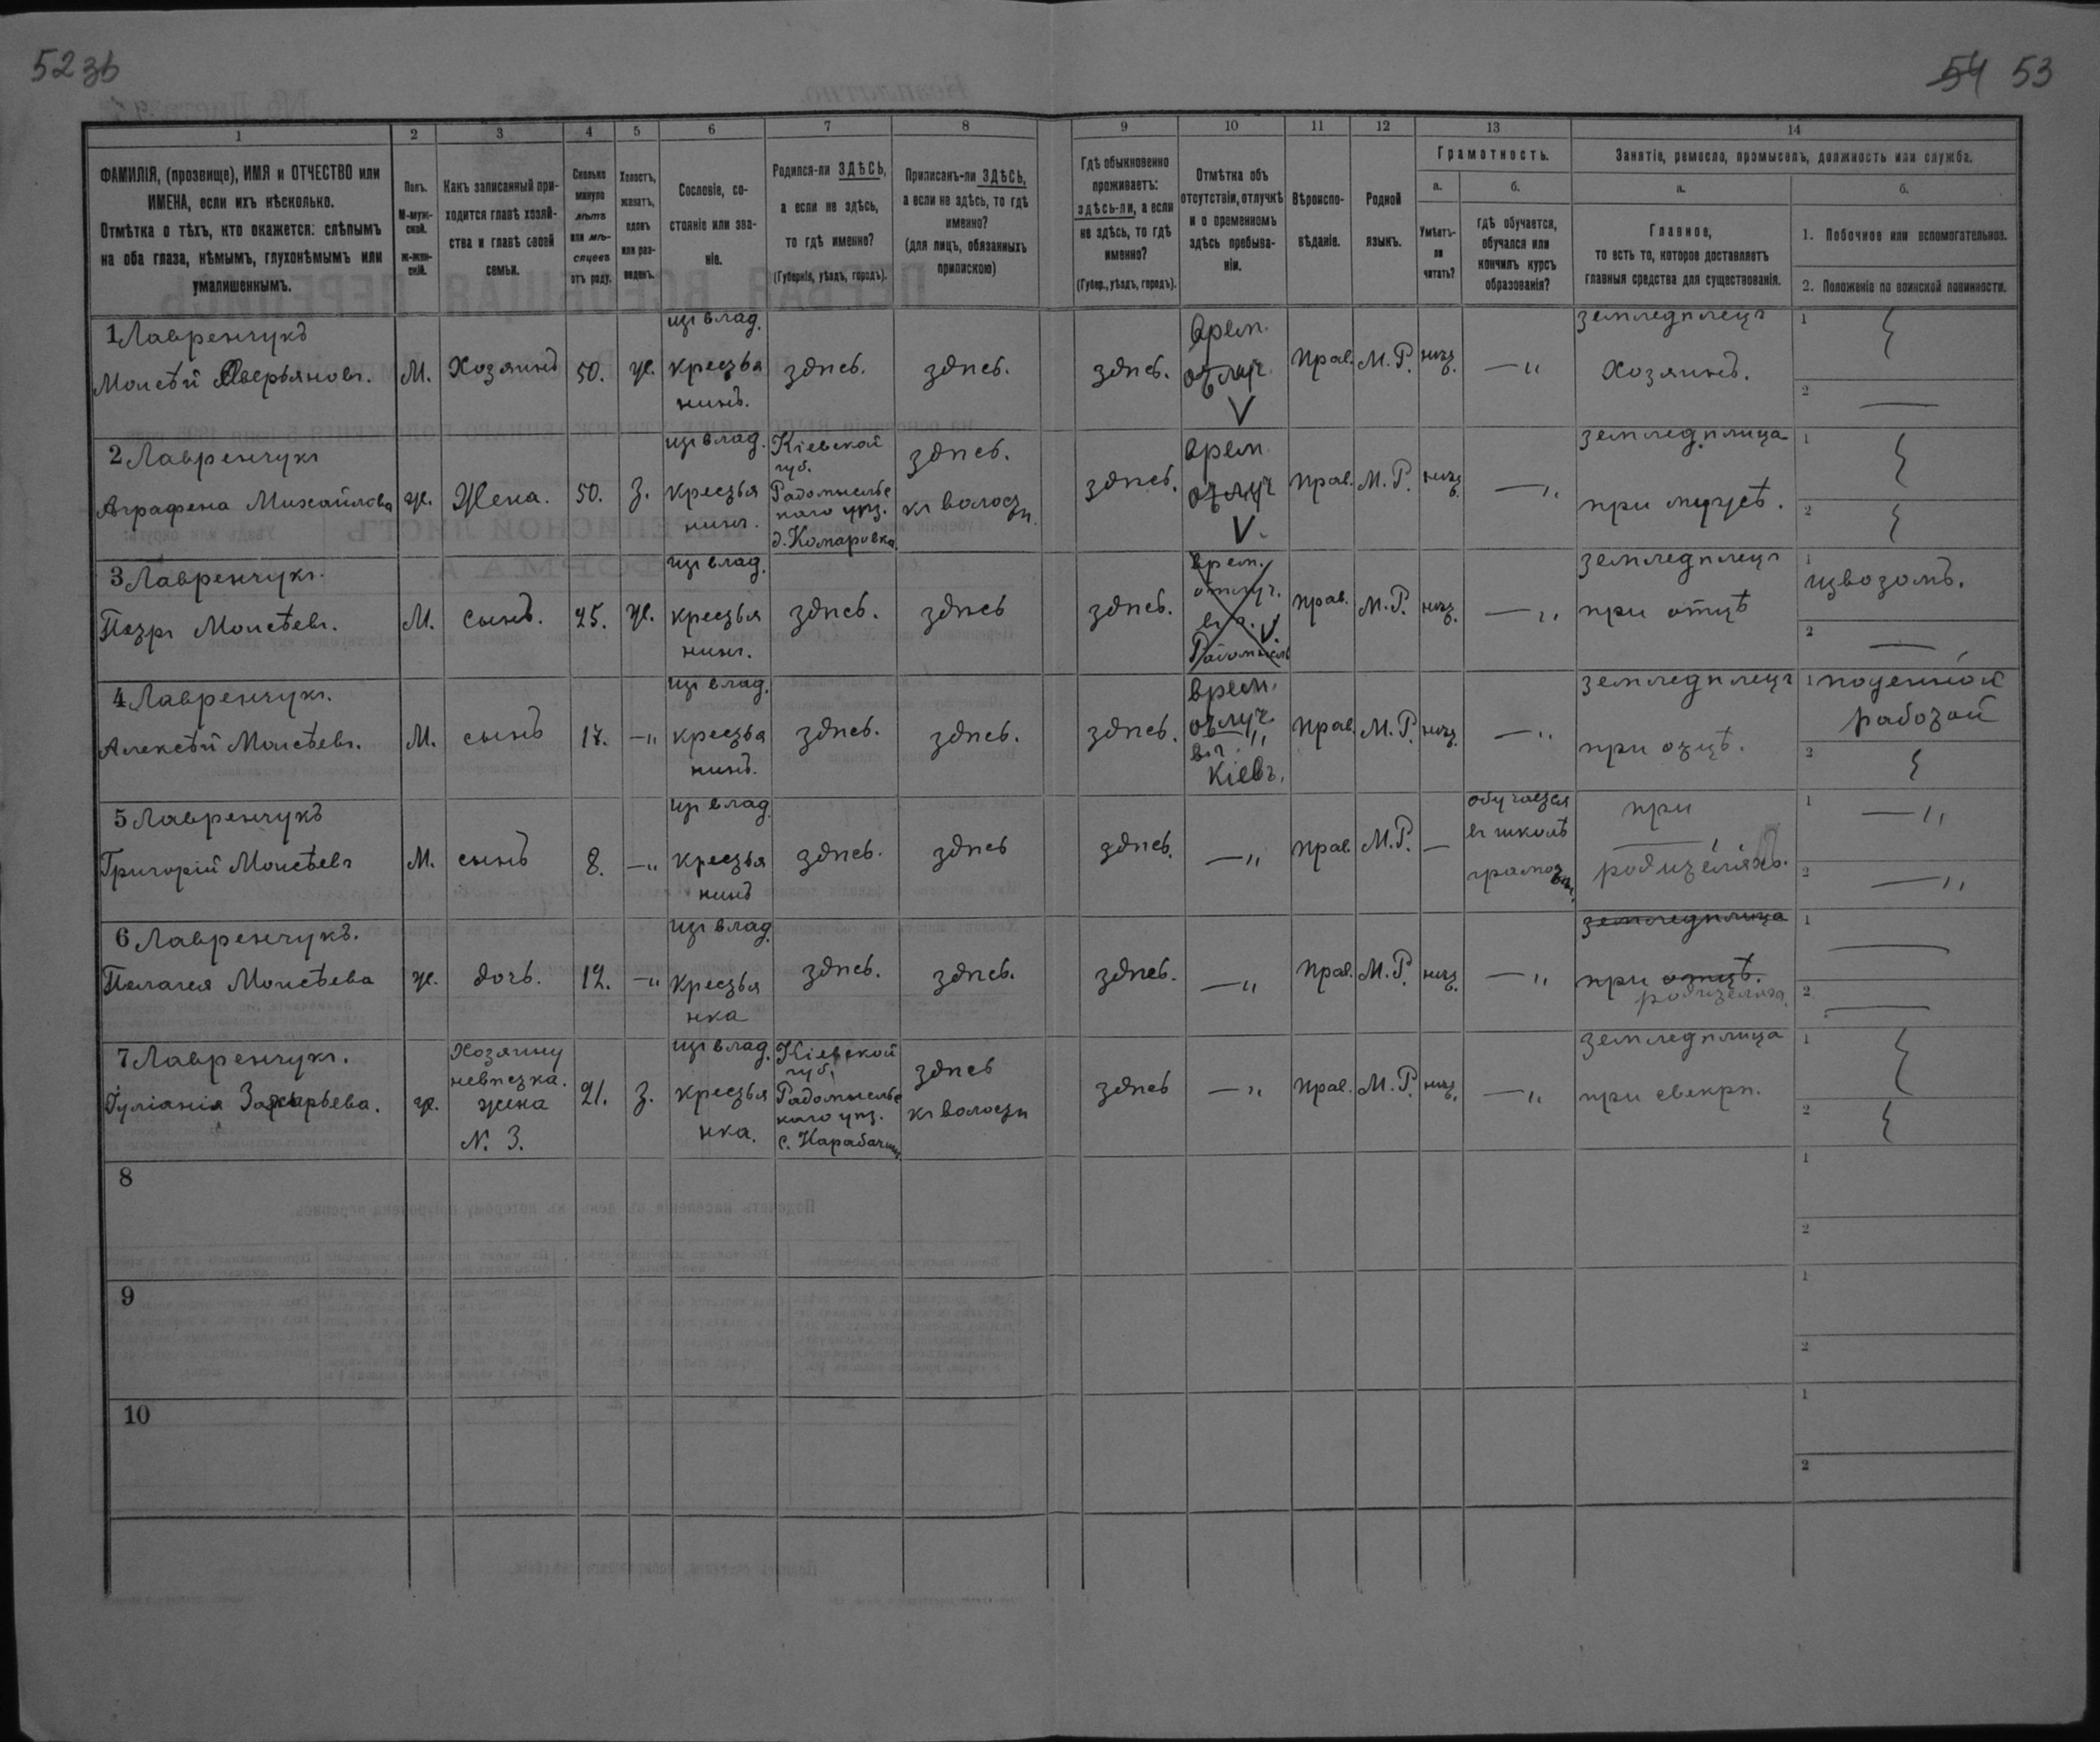 52 зв
54 53
1
2
3
4
5
6
7
8
9
10
11
12
13
14
ФАМИЛІЯ, (прозвище), ИМЯ и ОТЧЕСТВО или ИМЕНА, если ихъ нѣсколько.
Отмѣтка о тѣхъ, кто окажется: слѣпымъ на оба глаза, нѣмымъ, глухонѣмымъ или умалишеннымъ.
Полъ.
М-мужской.
ж-женскій.
Какъ записанный приходится главѣ хозяйства и главѣ своей семьи.
Сколько минуло лѣтъ или мѣсяцевъ отъ роду.
Холостъ, женатъ, вдовъ или разведенъ.
Сословіе, состояніе или званіе.
Родился-ли ЗДѢСЬ, а если не здѣсь, то гдѣ именно?
(Губернія, уѣздъ, городъ).
Приписанъ-ли ЗДѢСЬ, а если не здѣсь, то гдѣ именно?
(для лицъ, обязанныхъ припискою)
Гдѣ обыкновенно проживаетъ: здѣсь-ли, а если не здѣсь, то гдѣ именно?
(Губер., уѣздъ, городъ).
Отмѣтка объ отсутствіи, отлучкѣ и о временномъ здѣсь пребываніи.
Вѣроисповѣданіе.
Родной языкъ.
Грамотность.
а.
Умѣетъ-ли читать?
б.
гдѣ обучается, обучался или кончилъ курсъ образованія?
Занятіе, ремесло, промыселъ, должность или служба.
а.
Главное,
то есть то, которое доставляетъ главныя средства для существованія.
б.
1. Побочное или вспомогательное.
2. Положеніе по воинской повинности.
1 Лавренчукъ
Моисѣй Аверьяновъ.
М.
Хозяинъ
50.
ж.
изъ влад. крестьянинъ.
здѣсь.
здѣсь.
здѣсь.
врем. отлуч. V
Прав.
М. Р.
нѣтъ.
—"
земледѣлецъ
Хозяинъ.
1
2
2 Лавренчукъ
Аграфена Михайлова
ж.
Жена.
50.
з.
изъ влад. крестьянинъ.
Кіевской губ. Радомысльскаго уѣз. д. Комаровка.
здѣсь. къ волости
здѣсь.
врем. отлуч V.
Прав.
М. Р.
нѣтъ.
—"
земледѣлица
при мужѣ.
1
2
3 Лавренчукъ.
Петръ Моисѣевъ.
М.
сынъ.
25.
ж.
изъ влад. крестьянинъ.
здѣсь.
здѣсь
здѣсь.
врем. отлуч. въ г. V. Радомыслъ
Прав.
М. Р.
нѣтъ.
—"
земледѣлецъ
при отцѣ
1 извозомъ.
2 —
4 Лавренчукъ.
Алексѣй Моисѣевъ.
М.
сынъ
17.
—"
изъ влад. крестьянинъ.
здѣсь.
здѣсь.
здѣсь.
врем. отлуч. въ г. Кіевъ.
Прав.
М. Р.
нѣтъ.
—"
земледѣлецъ
при отцѣ.
1 поденной работой
2
5 Лавренчукъ
Григорій Моисѣевъ
М.
сынъ
8.
—"
изъ влад. крестьянинъ
здѣсь.
здѣсь
здѣсь.
—"
Прав.
М. Р.
—
обучается въ школѣ грамоты.
при родителяхъ.
1 —"
2 —"
6 Лавренчукъ.
Пелагея Моисѣева
ж.
дочь.
12.
—"
изъ влад. крестьянка
здѣсь.
здѣсь.
здѣсь.
—"
Прав.
М. Р.
нѣтъ.
—"
земледѣлица
при отцѣ.
родителяхъ.
1 —
2 —
7 Лавренчукъ.
Іуліанія Захарьева.
ж.
Хозяину невѣстка. жена N. 3.
21.
з.
изъ влад. крестьянка.
Кіевской губ. Радомысльскаго уѣз. с.
здѣсь къ волости
здѣсь
—"
Прав.
М. Р.
нѣтъ.
—"
земледѣлица
при свекрѣ.
1
2
8
1
2
9
1
2
10
1
2